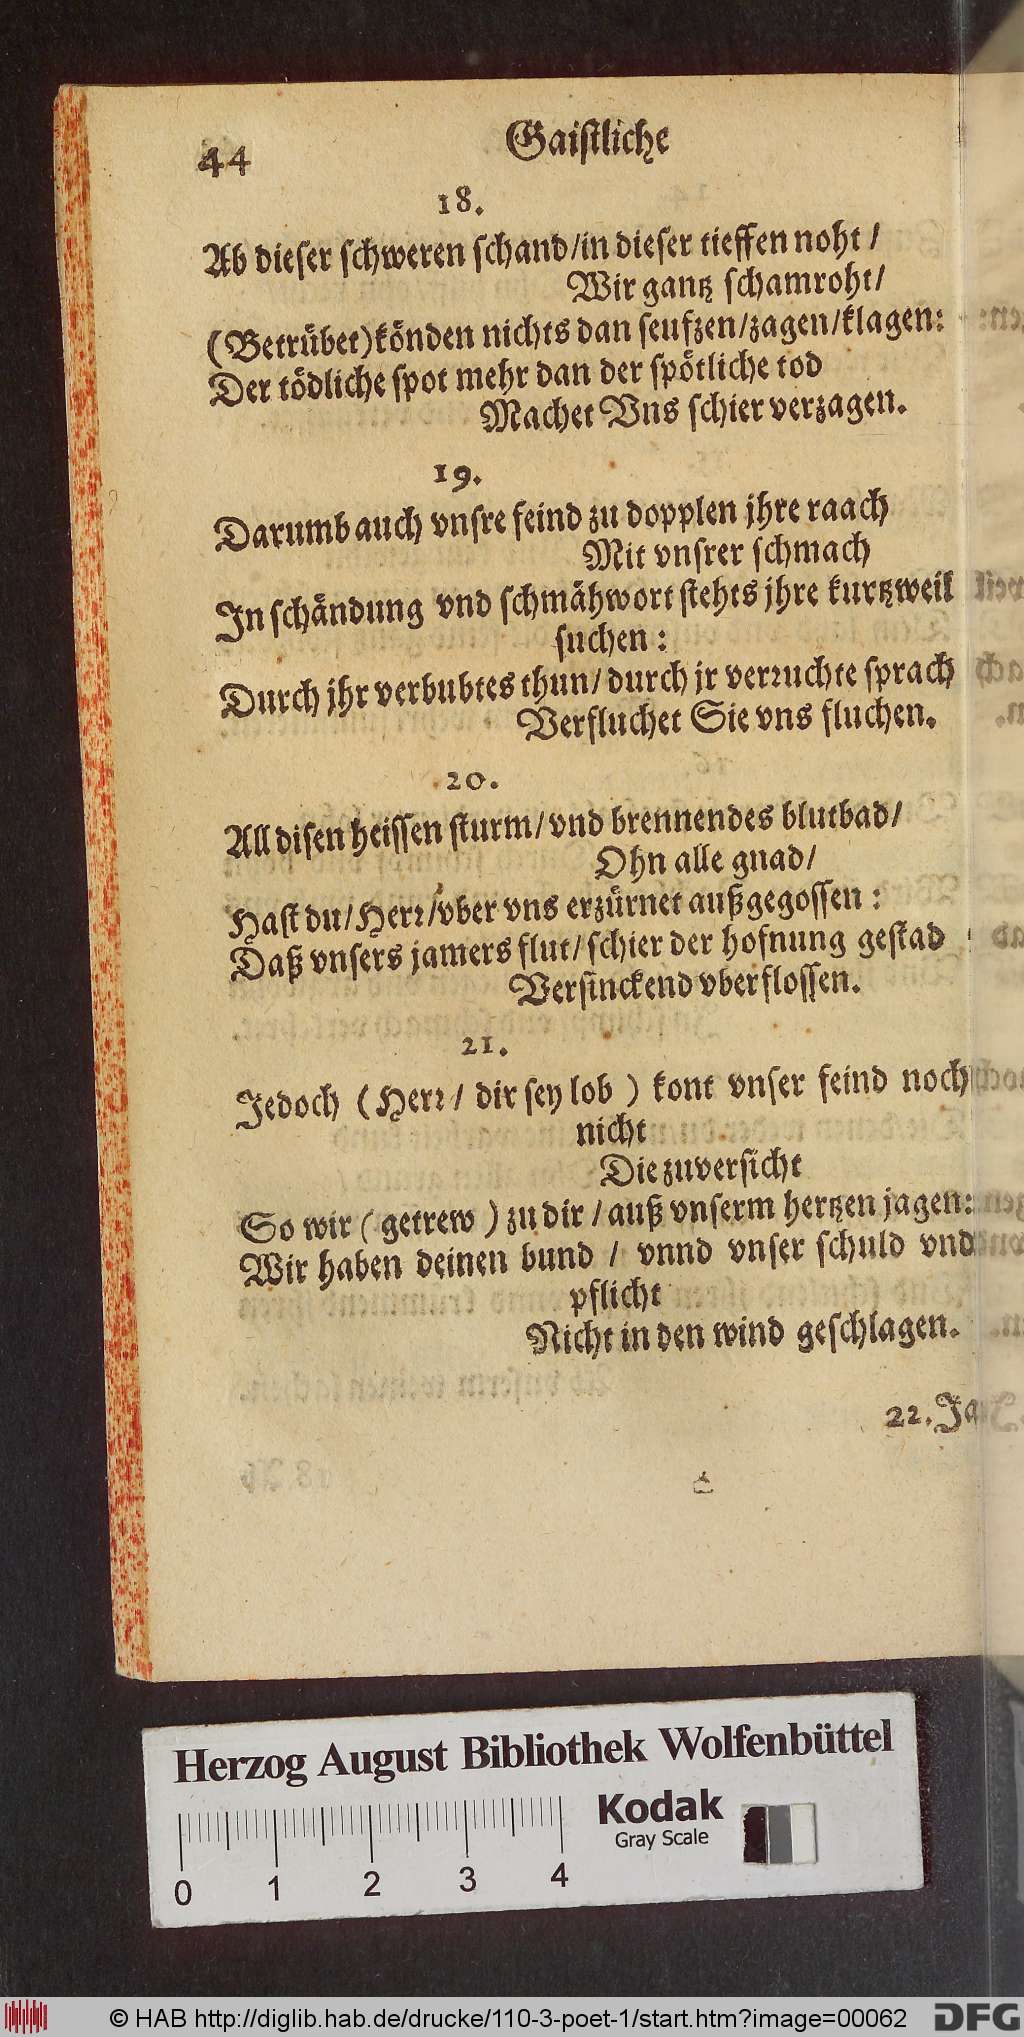 44
Gaistliche
18.
Ab dieser schweren schand/in dieser tieffen noht /
Wir gantz schamroht/
(Betrübet)könden nichts dan seufzen/zagen/klagen:
Der tödliche spot mehr dan der spötliche tod
Machet Vns schier verzagen.
19.
Darumb auch vnsre feind zu dopplen jhre raach
Mit vnsrer schmach
In schändung vnd schmähwort stehts jhre kurtzweil
suchen :
Durch jhr verbubtes thun/ durch jr verruchte sprach
Verfluchet Sie vns fluchen.
20.
All disen heissen sturm/ vnd brennendes blutbad/
Ohn alle gnad/
Hast du/Herr/vber vns erzürnet außgegossen :
Daß vnsers jamers flut/ schier der hofnung gestad
Versinckend vberflossen.
21.
Jedoch ( Herr / dir sey lob ) kont vnser feind noch
nicht
Die zuversicht
So wir ( getrew ) zu dir / auß vnserm hertzen jagen:
Wir haben deinen bund / vnnd vnser schuld vnd
pflicht
Nicht in den wind geschlagen.
22. Ja
Herzog August Bibliothek Wolfenbüttel
Kodak
Gray Scale
0 1 2 3 4
© HAB http://diglib.hab.de/drucke/110-3-poet-1/start.htm?image=00062
DFG